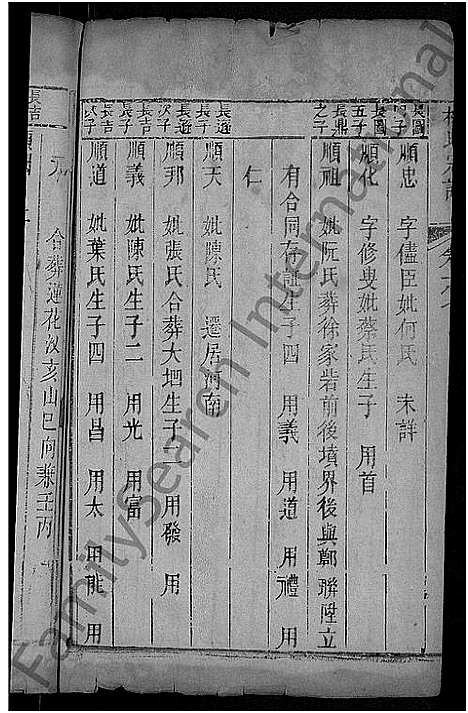 長圖四子
順忠 字儘臣妣何氏 未詳
長圖五子
順化 字修叟妣蔡氏生子 用首
長鼎之子
順祖 妣阮氏葬徐家砦前後墳界後與鄭聯陞立
有合同存証生子四 用義 用道 用禮 用
仁
長遜長子
順天 妣陳氏 遷居河南
長遜次子
順邦 妣張氏合葬大垇生子二 用發 用
長吉長子
順義 妣陳氏生子二 用光 用富
長吉次子
順道 妣葉氏生子四 用昌 用太 用龍 用
長吉
合葬蓮花汊亥山巳向兼壬丙
FamilySearch International